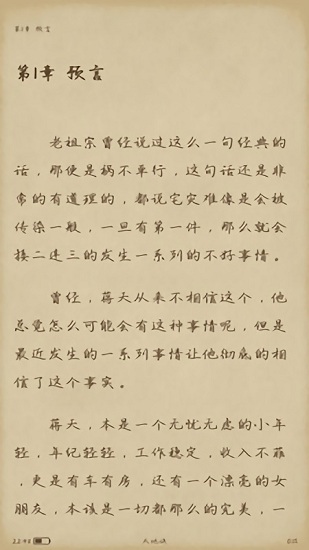 第1章 预言
第1章 预言
老祖宗曾经说过这么一句经典的
话，那便是祸不单行，这句话还是非
常的有道理的，都说宅灾难像是会被
传染一般，一旦有第一件，那么就会
接二连三的发生一系列的不好事情。
曾经，蒋天从来不相信这个，他
总觉怎么可能会有这种事情呢，但是
最近发生的一系列事情让他彻底的相
信了这个事实。
蒋天，本是一个无忧无虑的小年
轻，年纪轻轻，工作稳定，收入不菲
，更是有车有房，还有一个漂亮的女
朋友，本该是一切都那么的完美，一